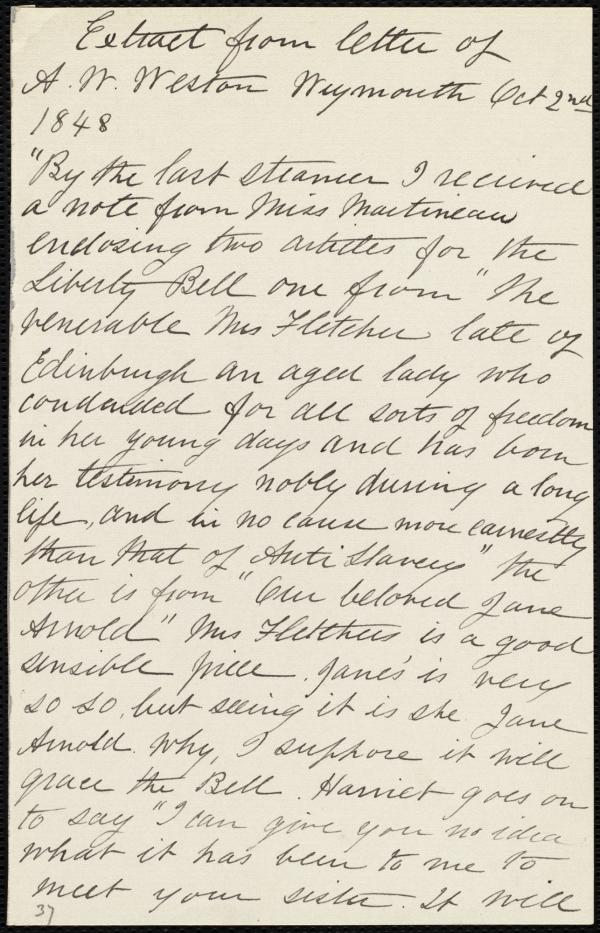 Extract from letter of
A. W. Weston Weymouth Oct 2nd
1848
"By the last steamer I recieved
a note from Miss Martineau
enclosing two articles for the
Liberty Bell one from "the
venerable Mrs Fletcher late of
Edinburgh an aged lady who
contended for all sorts of freedom
in her young days and has born
her testimony nobly during a long
life, and in no cause more earnestly
than that of Anti Slavery" the
other is from "Our beloved Jane
Arnold" Mrs Fletchers is a good
sensible piece. Jane's is very
so so, but seeing it is she Jane
Arnold. Why, I suppose it will
grace the Bell. Harriet goes on
to say "I can give you no idea
what it has been to me to
meet your sister. It will
37